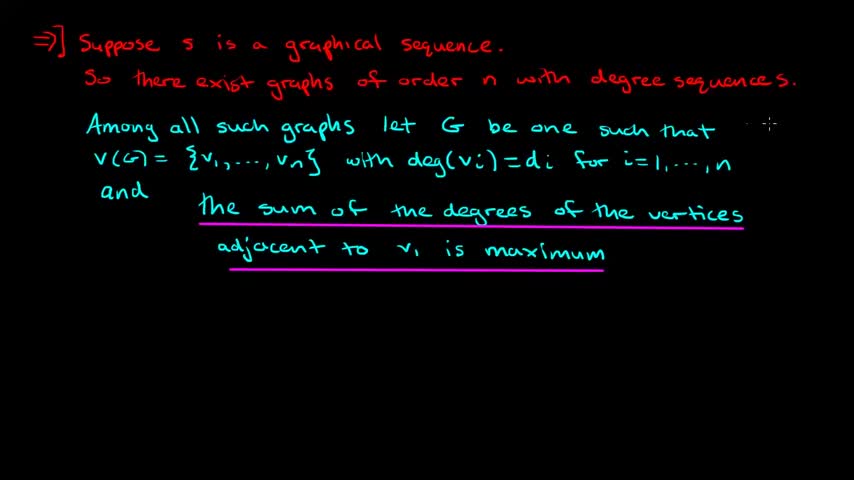 ⇒] Suppose s is a graphical sequence.
So there exist graphs of order n with degree sequence s.
Among all such graphs let G be one such that
V(G) = {v₁, ..., vₙ} with deg(vᵢ) = dᵢ for i = 1, ..., n
and
the sum of the degrees of the vertices
adjacent to v₁ is maximum